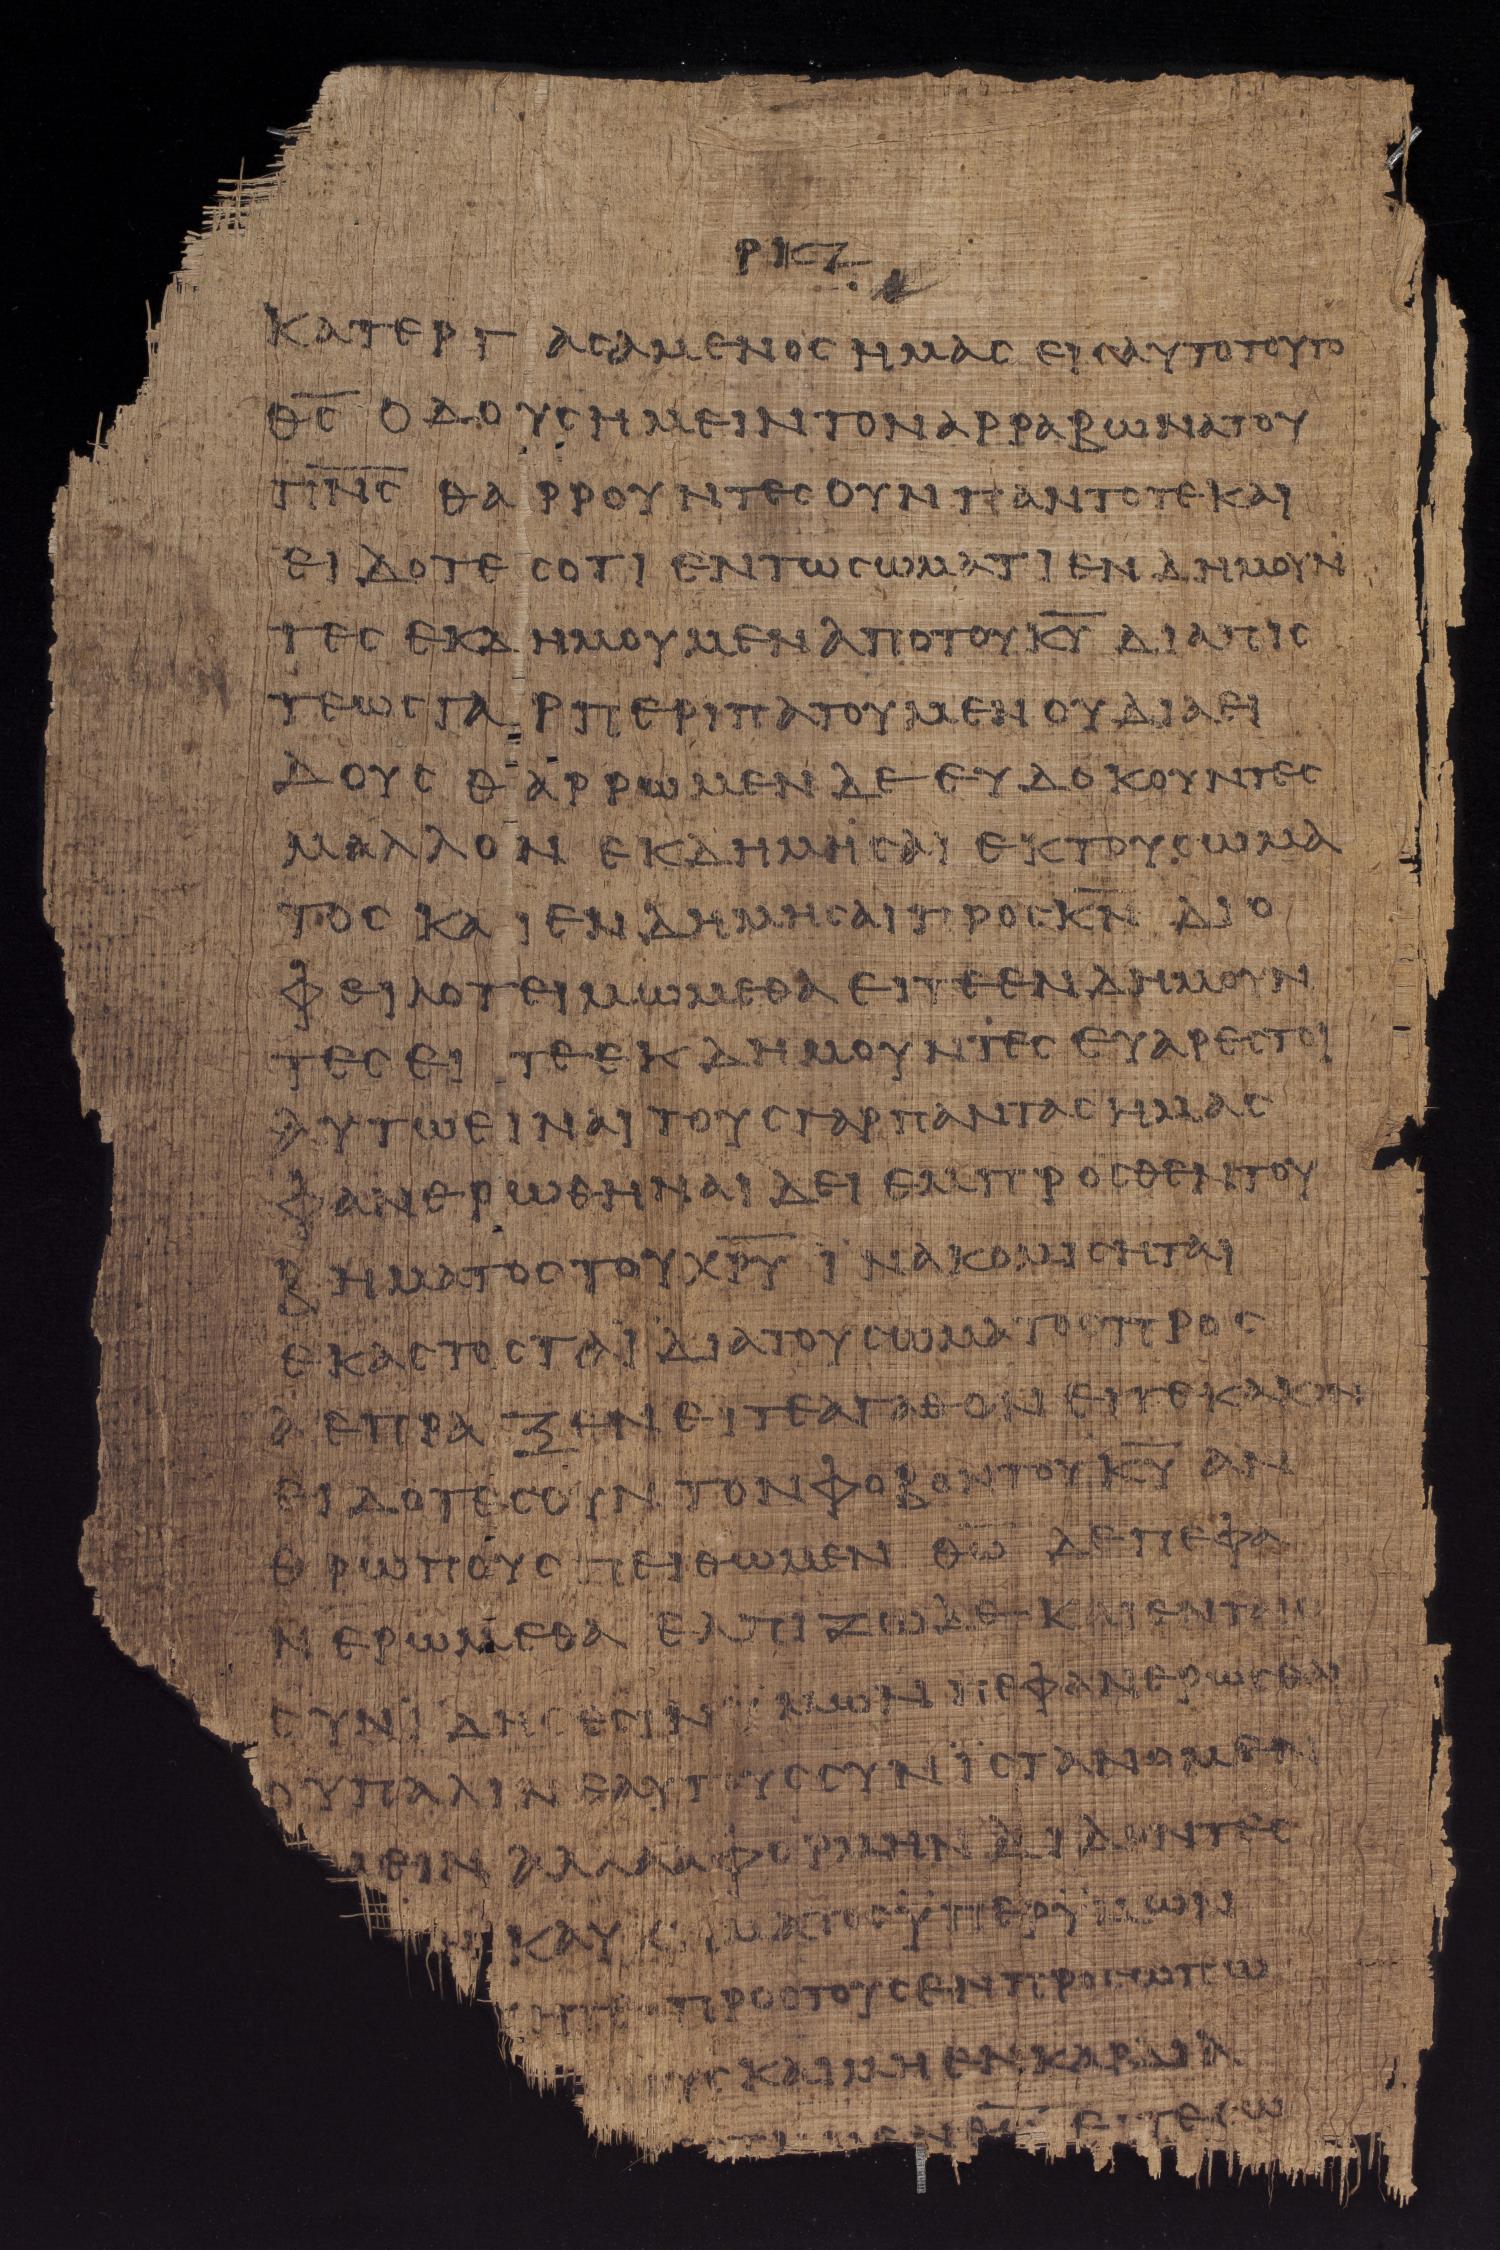 ΡΚΖ
ΚΑΤΕΡΓΑCΑΜΕΝΟC ΗΜΑC ΕΙCΑΥΤΟΤΟΥΤΟ
Θ̅C̅ Ο ΔΟΥCΗΜΕΙΝΤΟΝΑΡΡΑΒΩΝΑΤΟΥ
Π̅Ν̅C̅ ΘΑΡΡΟΥΝΤΕCΟΥΝΠΑΝΤΟΤΕΚΑΙ
ΕΙΔΟΤΕCΟΤΙ ΕΝΤΩCΩΜΑΤΙΕΝΔΗΜΟΥΝ
ΤΕC ΕΚΔΗΜΟΥΜΕΝΑΠΟΤΟΥΚ̅Υ̅ ΔΙΑΠΙC
ΤΕΩCΓΑΡΠΕΡΙΠΑΤΟΥΜΕΝΟΥΔΙΑΕΙ
ΔΟΥC ΘΑΡΡΩΜΕΝΔΕ ΕΥΔΟΚΟΥΝΤΕC
ΜΑΛΛΟΝ ΕΚΔΗΜΗCΑΙ ΕΚΤΟΥCΩΜΑ
ΤΟC ΚΑΙΕΝΔΗΜΗCΑΙΠΡΟCΚ̅Ν̅ ΔΙΟ
ΦΕΙΛΟΤΕΙΜΩΜΕΘΑ ΕΙΤΕΕΝΔΗΜΟΥΝ
ΤΕC ΕΙΤΕΕΚΔΗΜΟΥΝΤΕC ΕΥΑΡΕCΤΟΙ
ΑΥΤΩΕΙΝΑΙ ΤΟΥCΓΑΡΠΑΝΤΑCΗΜΑC
ΦΑΝΕΡΩΘΗΝΑΙ ΔΕΙ ΕΜΠΡΟCΘΕΝΤΟΥ
ΒΗΜΑΤΟCΤΟΥΧ̅Ρ̅Υ̅ ΙΝΑΚΟΜΙCΗΤΑΙ
ΕΚΑCΤΟCΤΑΙΔΙΑΤΟΥCΩΜΑΤΟCΠΡΟC
Α ΕΠΡΑΞΕΝΕΙΤΕΑΓΑΘΟΝ ΕΙΤΕΚΑΚΟΝ
ΕΙΔΟΤΕCΟΥΝ ΤΟΝΦΟΒΟΝΤΟΥΚ̅Υ̅ ΑΝ
ΘΡΩΠΟΥC ΠΕΙΘΩΜΕΝ Θ̅Ω̅ ΔΕΠΕΦΑ
ΝΕΡΩΜΕΘΑ ΕΛΠΙΖΩΔΕ ΚΑΙΕΝΤΑΙC
CΥΝΙΔΗCΕCΙΝ ΥΜΩΝΠΕΦΑΝΕΡΩCΘΑΙ
ΟΥΠΑΛΙΝΕΑΥΤΟΥCCΥΝΙCΤΑΝΟΜΕΝ
ΜΕΙΝ ΑΛΛΑΑΦΟΡΜΗΝΔΙΔΟΝΤΕC
ΚΑΥΧΗΜΑΤΟCΫΠΕΡΫΜΩΝ
ΠΡΟCΤΟΥCΕΝΠΡΟCΩΠΩ
ΚΑΙΜΗΕΝΚΑΡΔΙΑ
Θ̅Ω̅ ΕΙΤΕCΩ